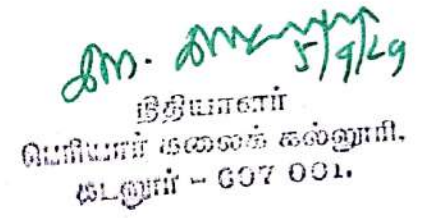 5/9/29
நிதியாளர்
பெரியார் கலைக் கல்லூரி,
கடலூர் - 607 001.